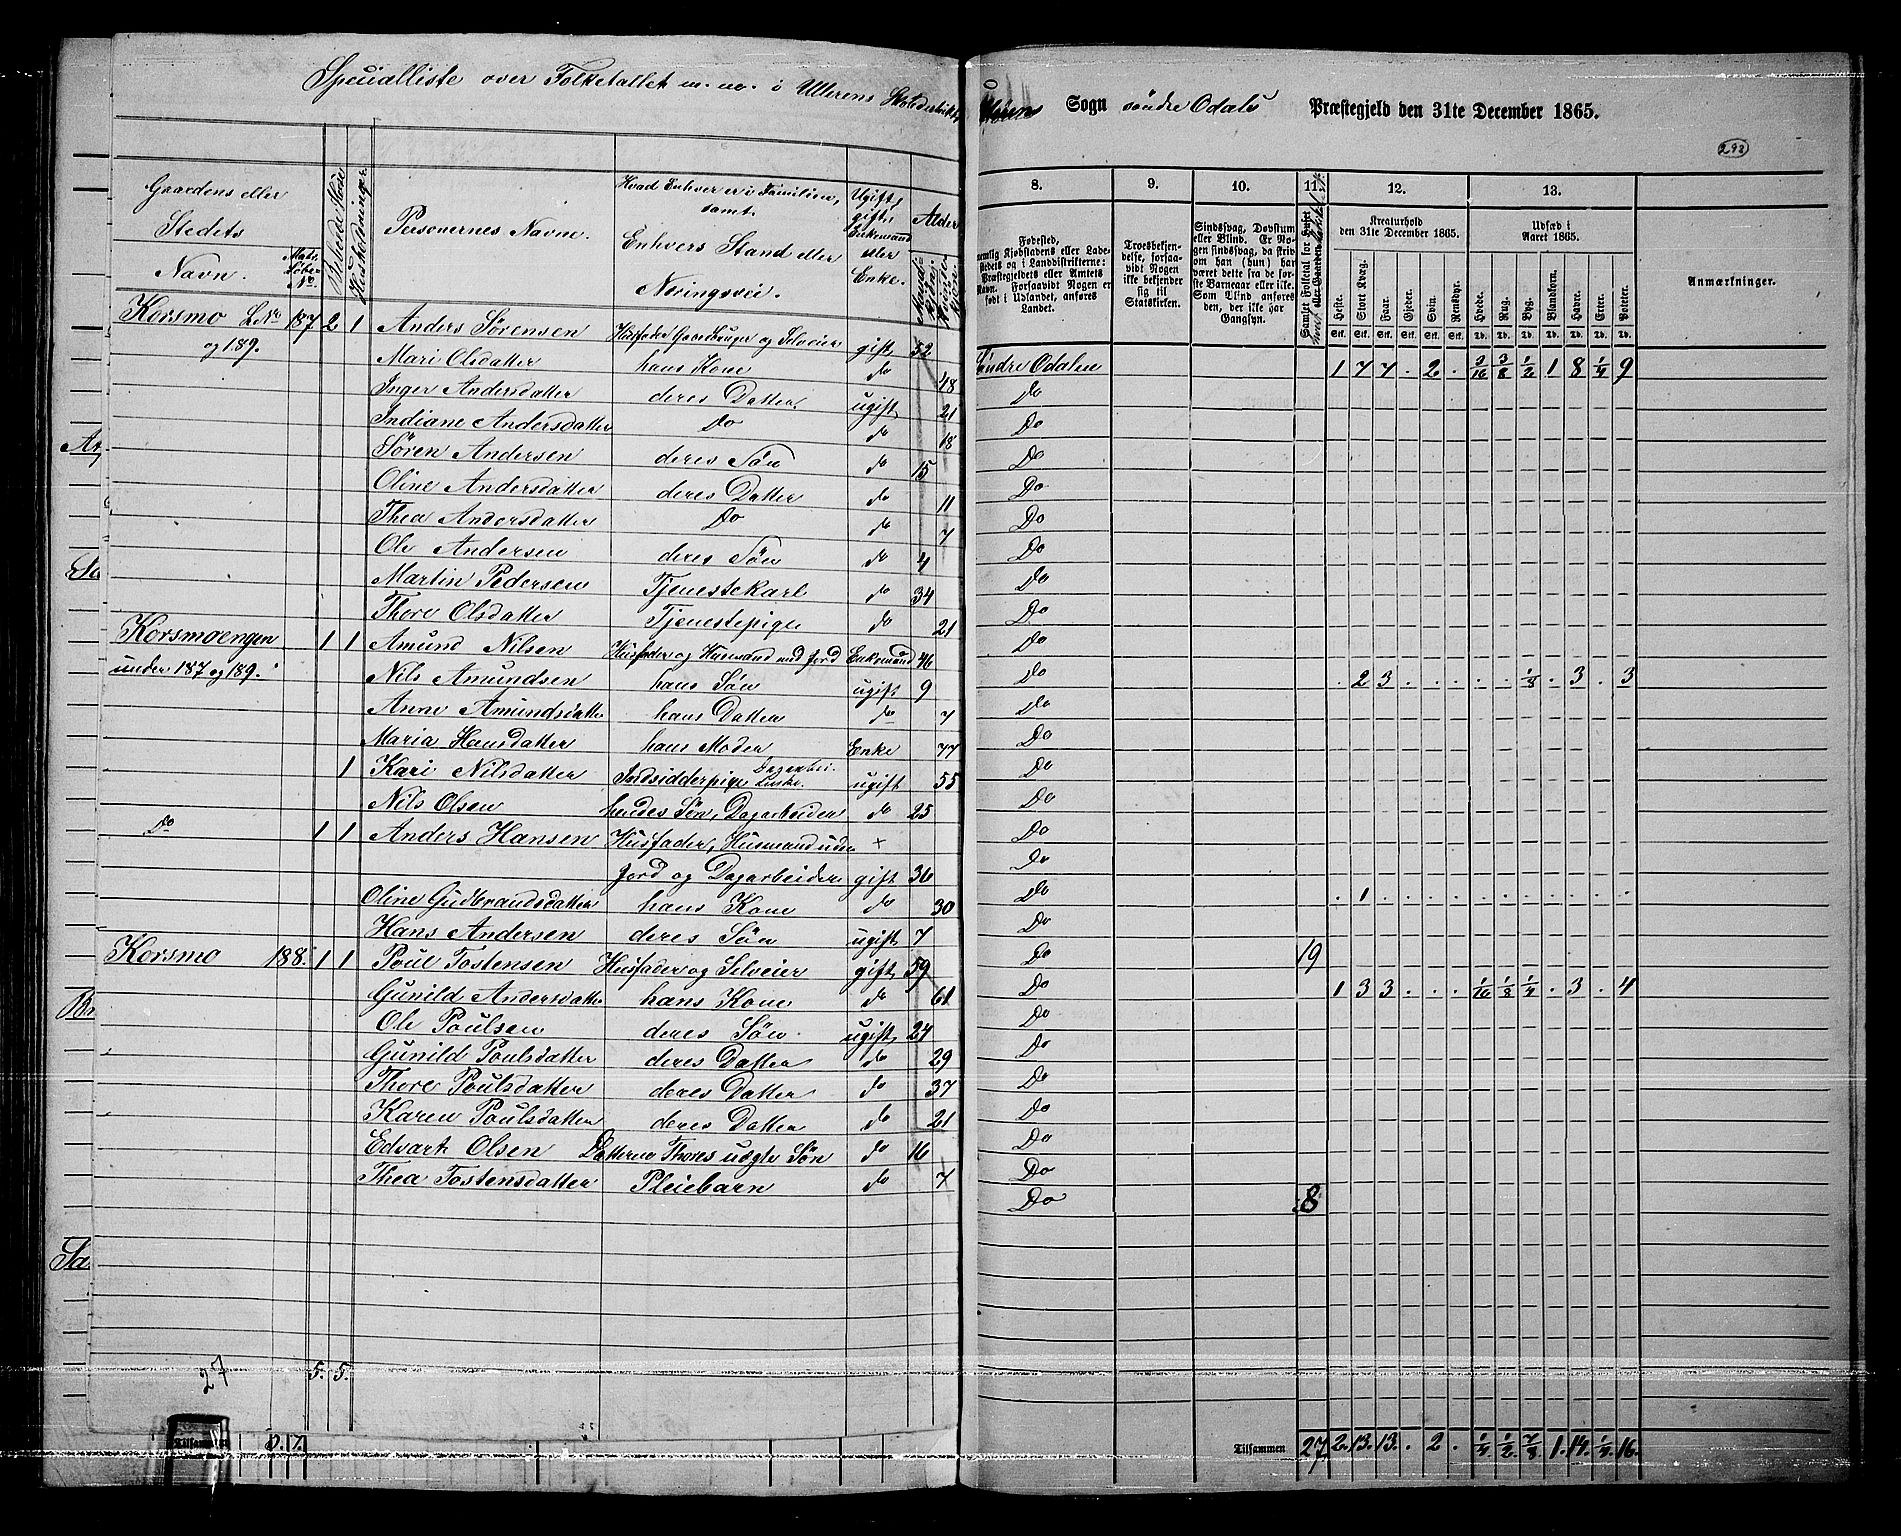 Specialliste over Folketallet m. m. i Ullerens Skoledistrikt,
Sogn söndre Odals Præstegjeld den 31te December 1865.
292
Gaardens eller Stedets Navn.
Mats. Löbe-No
Beboede Huse
Huusholdninger.
Personernes Navne.
Hvad Enhver er i Familien, samt Enhvers Stand eller Næringsvei.
Ugift, gift, Enkemand eller Enke.
Alder
8. 9. 10. 11. 12. 13.
Troesbekjendelse, forsaavidt Nogen ikke bekjender sig til Statskirken.
Sindssvag, Døvstum eller Blind. Er Nogen sindssvag, da skrives om han (hun) har været dette fra de første Barneaar eller ikke. Som Blind anføres den, der ikke har Gangsyn.
Kreaturhold den 31te December 1865.
Udsæd i Aaret 1865.
Anmærkninger.
Heste. Stort Kvæg. Faar. Gjeder. Svin. Rensdyr. Hvede. Rug. Byg. Blandkorn. Havre. Erter. Poteter.
Stk. Stk. Stk. Stk. Stk. Stk. Td. Td. Td. Td. Td. Td. Td.
Korsmo LNo 187 2 1 Anders Sörensen Husfader Gaardbruger og Selveier gift 52 Söndre Odalen 1 7 7 . 2 . 3/16 3/8 1/2 1 8 1/4 9
og 189. Mari Olsdatter hans Kone do 48 Do
Inger Andersdatter deres Datter ugift 21 Do
Indiane Andersdatter Do do 18 Do
Sören Andersen deres Sön do 15 Do
Oline Andersdatter deres Datter do 11 Do
Thea Andersdatter Do do 7 Do
Ole Andersen deres Sön do 4 Do
Martin Pedersen Tjenestekarl do 34 Do
Thore Olsdatter Tjenestepige do 21 Do
Korsmoengen 1 1 Amund Nilsen Husfader og Husmand med Jord Enkemand 46 Do . 2 3 . . . . . 1/8 . 3 . 3
under 187 og 189. Nils Amundsen hans Sön ugift 9 Do
Anne Amundsdatter hans Datter do 7 Do
Maria Hansdatter hans Moder Enke 77 Do
1 Kari Nilsdatter Indsidderpige ugift 55 Do
Nils Olsen hendes Sön, Dagarbeider do 25 Do
Do 1 1 Anders Hansen Husfader, Husmand uden +
Jord og Dagarbeider gift 36 Do . 1 . . . . . . . . . . .
Oline Gudbrandsdatter hans Kone do 30 Do
Hans Andersen deres Sön ugift 7 Do 19
Korsmo 188. 1 1 Poul Tostensen Husfader og Selveier gift 59 Do 1 3 3 . . . 1/16 1/8 1/4 . 3 . 4
Gunild Andersdatter hans Kone do 61 Do
Ole Poulsen deres Sön ugift 24 Do
Gunild Poulsdatter deres Datter do 29 Do
Thore Poulsdatter deres Datter do 37 Do
Karen Poulsdatter deres Datter do 21 Do
Edvart Olsen Datteren Thores uægte Sön do 16 Do
Thea Tostensdatter Pleiebarn do 7 Do 8
27 5. 5.
Tilsammen 27 2. 13. 13. . 2 . 1/4 1/2 7/8 1. 14. 1/4 16.